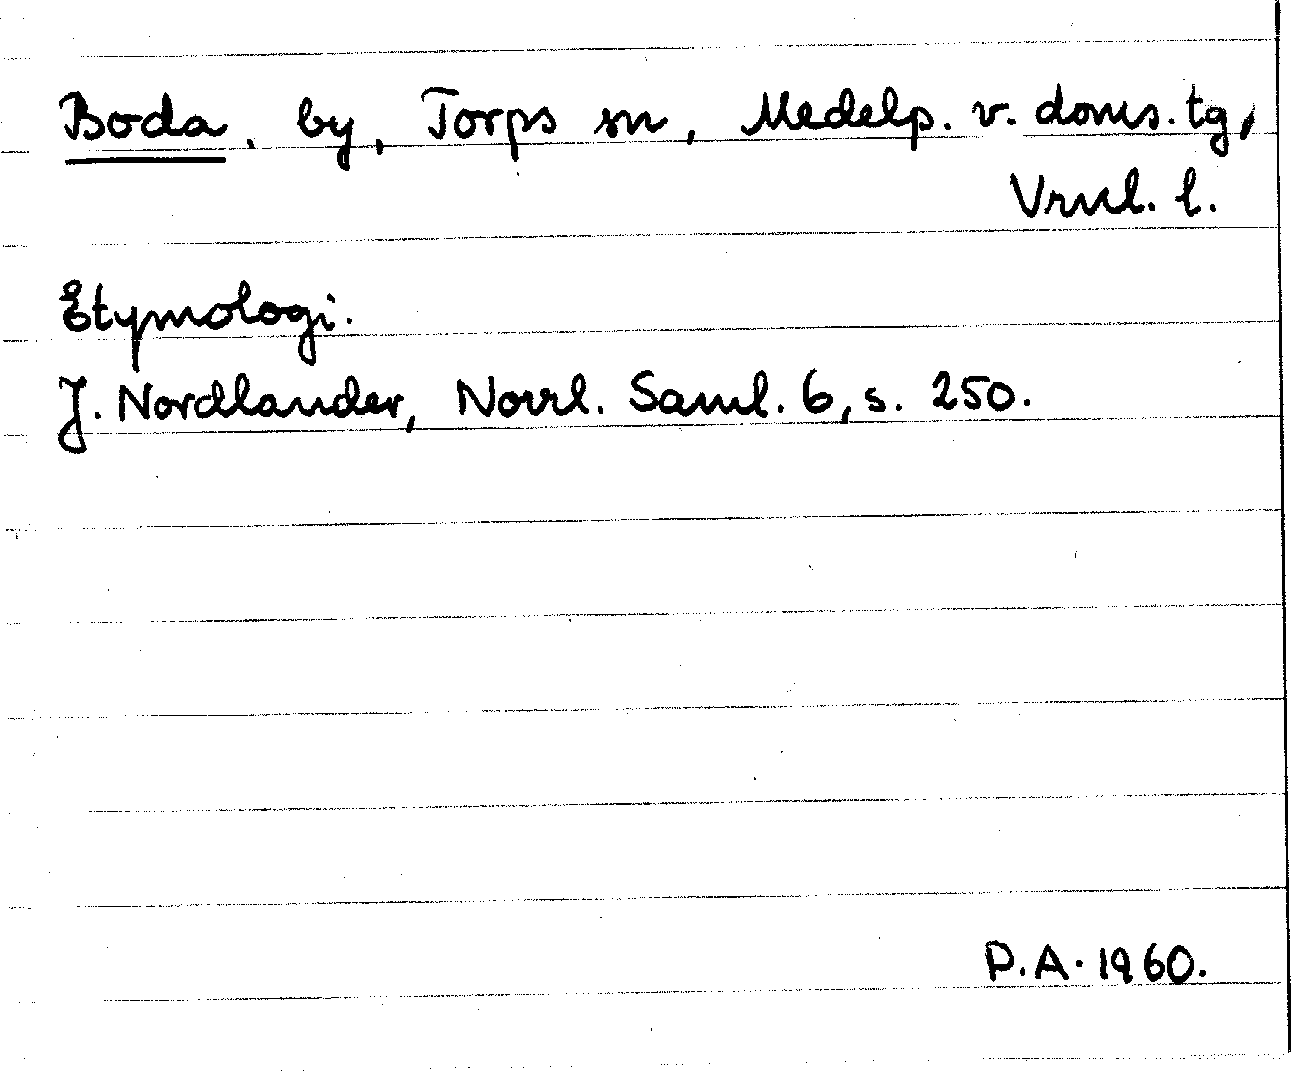 Boda, by, Torps sn, Medelp. v. doms. tg,
Vrnl. l.
Etymologi.
J. Nordlander, Norrl. Saml. 6, s. 250.
P.A. 1960.